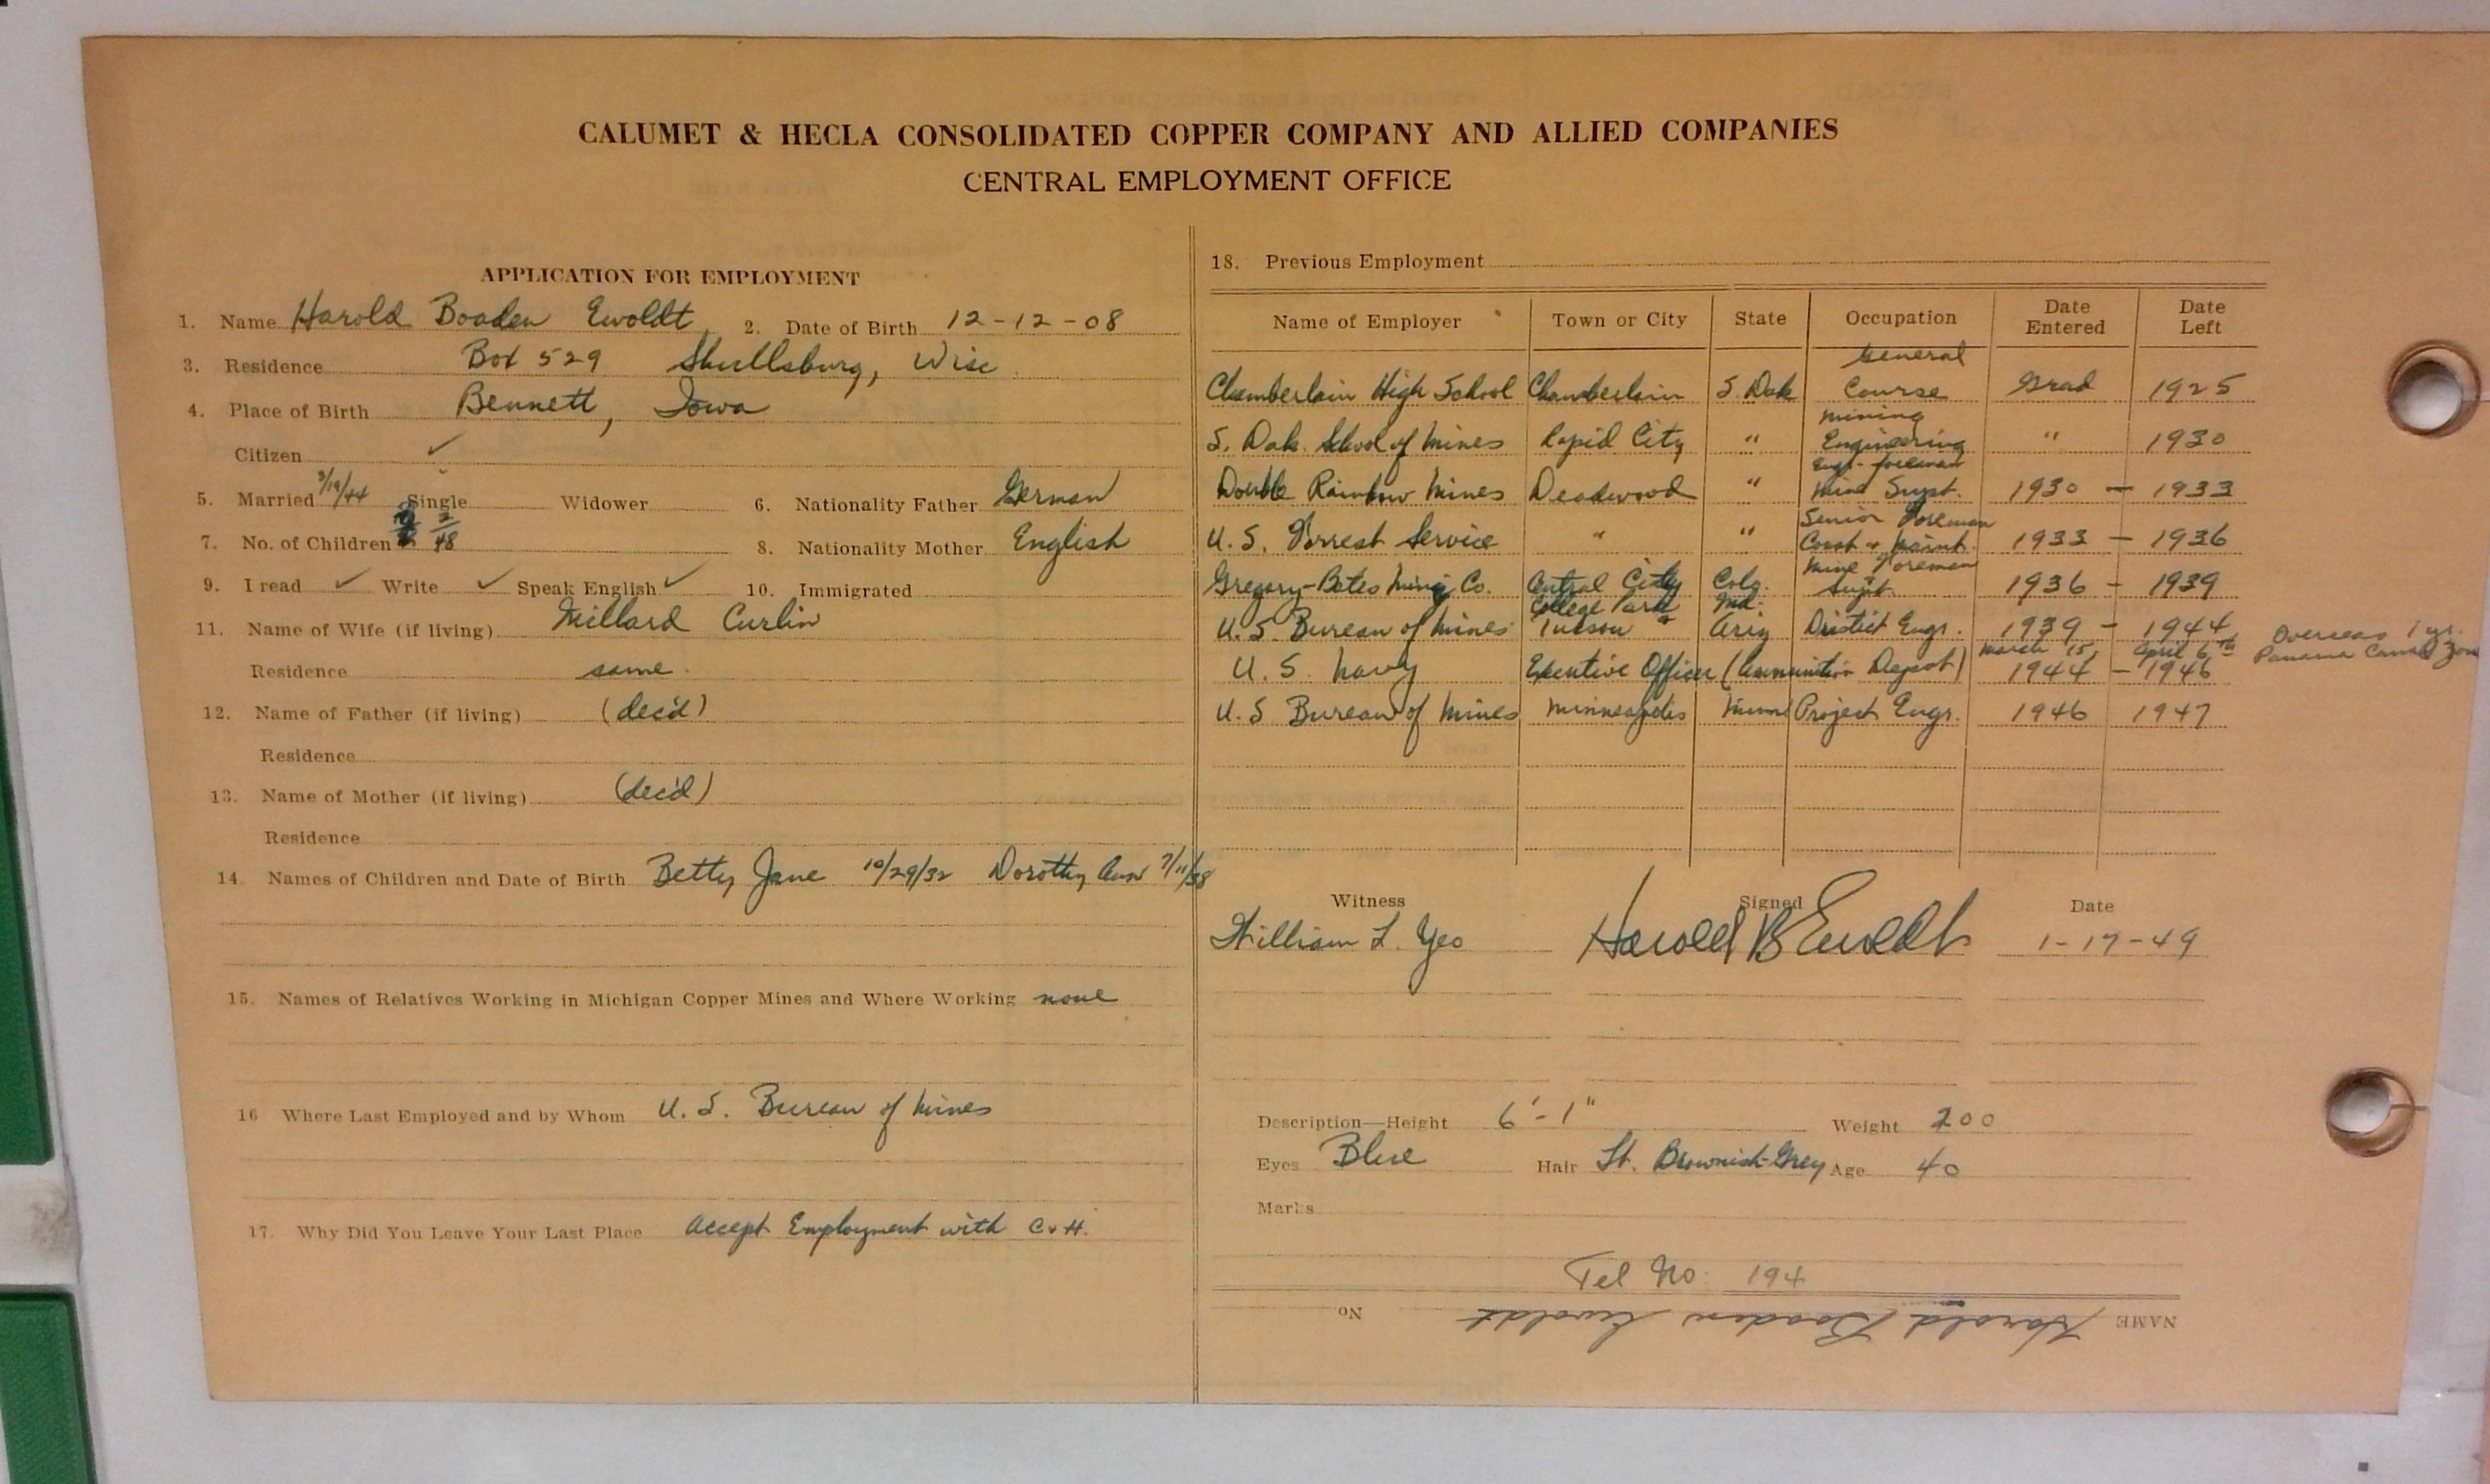 CALUMET & HECLA CONSOLIDATED COPPER COMPANY AND ALLIED COMPANIES
CENTRAL EMPLOYMENT OFFICE
APPLICATION FOR EMPLOYMENT
1. Name Harold Boaden Ewoldt 2. Date of Birth 12-12-08
3. Residence Box 529 Shullsburg, Wisc
4. Place of Birth Bennett, Iowa
Citizen ✓
5. Married 3/19/44 Single Widower 6. Nationality Father German
7. No. of Children 2/48 8. Nationality Mother English
9. I read ✓ Write ✓ Speak English ✓ 10. Immigrated
11. Name of Wife (if living) Millard Curlin
Residence same.
12. Name of Father (if living) (dec'd)
Residence
13. Name of Mother (if living) (dec'd)
Residence
14. Names of Children and Date of Birth Betty Jane 10/29/32 Dorothy Ann 7/11/38
15. Names of Relatives Working in Michigan Copper Mines and Where Working none
16 Where Last Employed and by Whom U. S. Bureau of Mines
17. Why Did You Leave Your Last Place Accept Employment with C & H.
18. Previous Employment
Name of Employer Town or City State Occupation Date Entered Date Left
Chamberlain High School Chamberlain S. Dak General Course Grad 1925
S. Dak. School of Mines Rapid City " Mining Engineering " 1930
Double Rainbow Mines Deadwood " Engr-foreman Mine Supt. 1930 - 1933
U. S. Forrest Service " " Senior Foreman Const & Maint. 1933 - 1936
Gregory-Bates Mining Co. Central City Colo. Mine Foreman & Supt. 1936 - 1939
U. S. Bureau of Mines College Park & Tucson Md. Ariz District Engr. 1939 - 1944
U. S. Navy Executive Officer (Ammunition Depot) March 15, 1944 - April 6th 1946 Overseas 1 yr. Panama Canal Zone
U. S Bureau of Mines Minneapolis Minn Project Engr. 1946 1947
Witness Signed Date
William L. Yeo Harold B Ewoldt 1-17-49
Description—Height 6'-1" Weight 200
Eyes Blue Hair Lt. Brownish-Grey Age 40
Marks
Tel No. 194
NAME Harold Boaden Ewoldt No